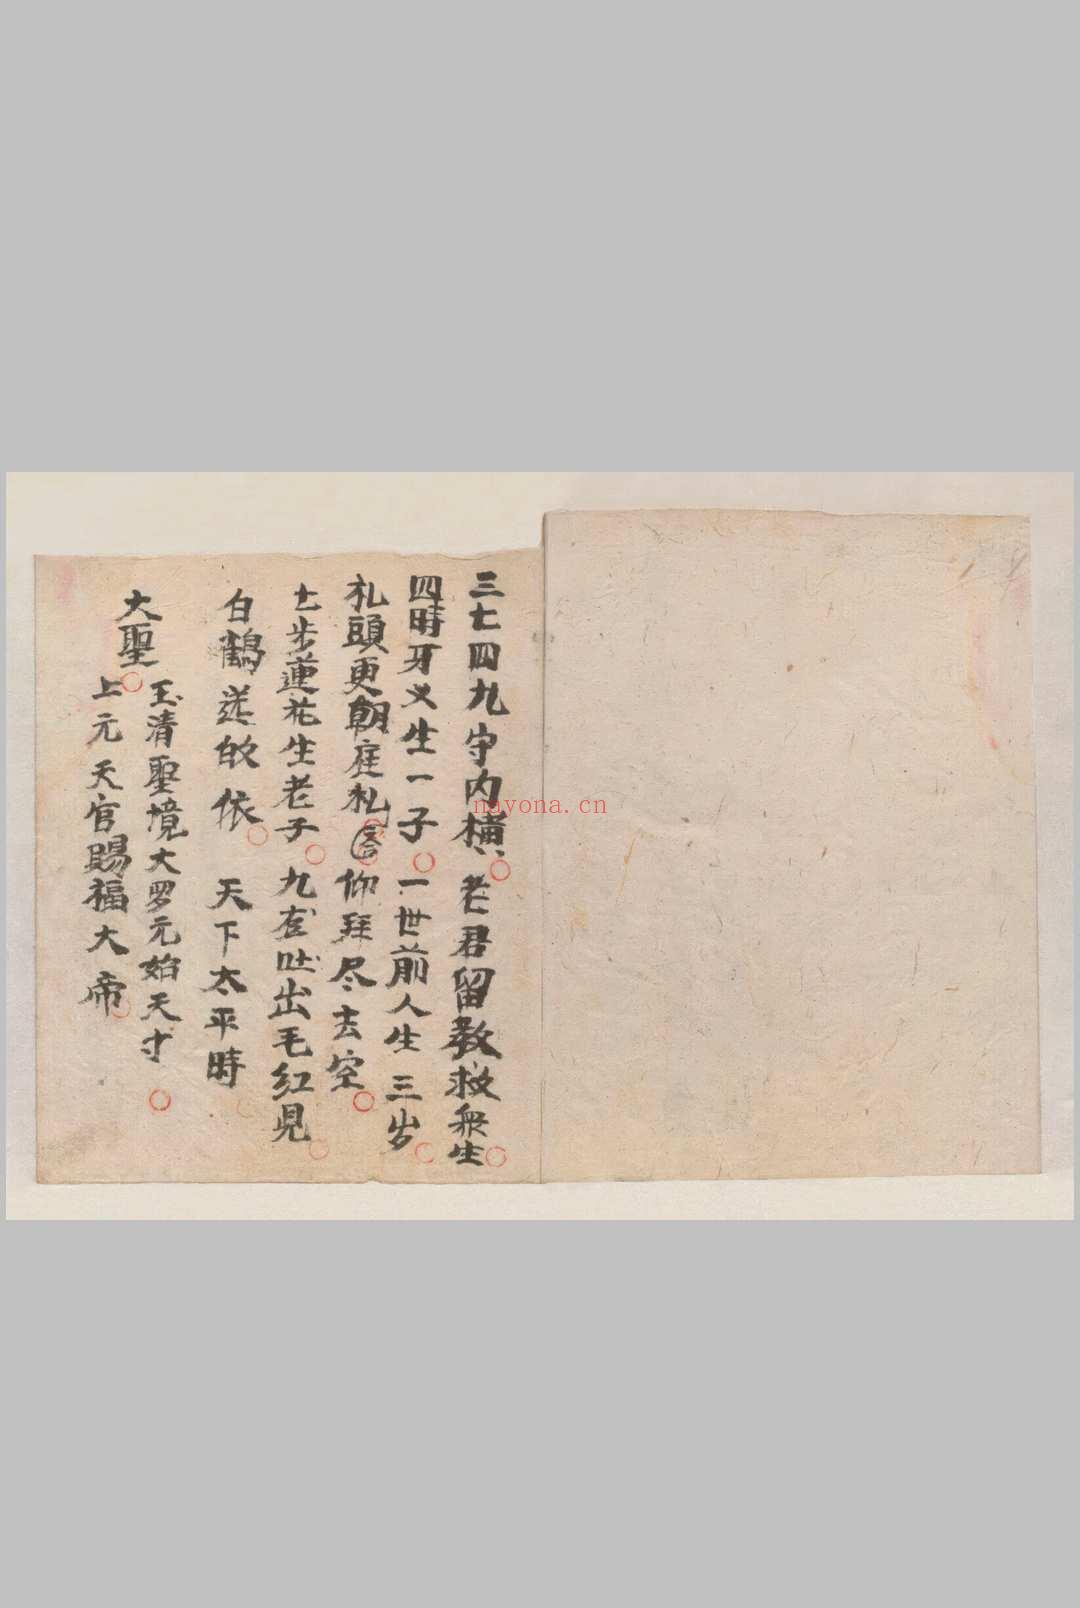 三七四九字内橫老君留教救衆生
四時牙义生一子一世前人生三岁
礼頭更朝庭礼仰拜尽去空
七步蓮花生老子九吐出毛红見
白鶴送的依天下太平時
大聖
玉清聖境大罗元始天寸
上元天官賜福大帝
nayona.cn